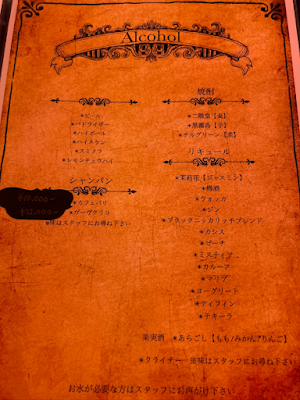 Alcohol
＊ビール
＊バドワイザー
＊ハイボール
＊ハイネケン
＊スミノフ
＊レモンチュウハイ
シャンパン
＊カフェパリ
＊ヴーヴクリコ
＊味はスタッフにお尋ね下さい
焼酎
＊二階堂【麦】
＊黒霧島【芋】
リキュール
＊茉莉花【ジャスミン】
＊梅酒
＊ウォッカ
＊ジン
＊ブラックニッカリッチブレンド
＊カシス
＊ピーチ
＊ミスティア
＊カルーア
＊マリブ
＊ヨーグリート
＊ティフィン
＊テキーラ
果実酒 ＊あらごし【もも/みかん/りんご】
＊クライナー 味はスタッフにお尋ね下さい
お水が必要な方はスタッフにお声がけ下さい